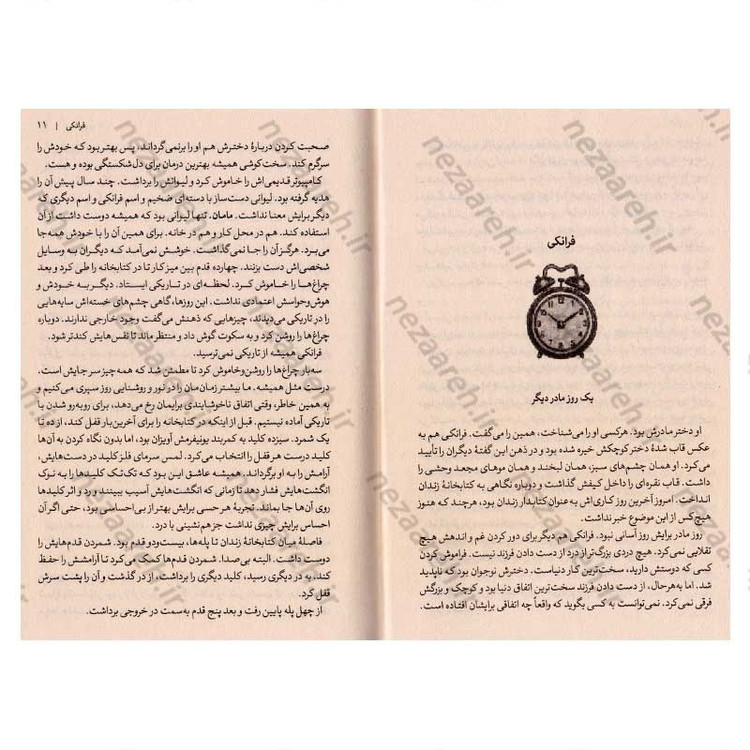 فرانکی
یک روز مادر دیگر
او دختر مادرش بود. هرکسی او را می‌شناخت، همین را می‌گفت. فرانکی هم به
عکس قاب شدهٔ دختر کوچکش خیره شده بود و در ذهن این گفتهٔ دیگران را تأیید
می‌کرد. او همان چشم‌های سبز، همان لبخند و همان موهای مجعد وحشی را
داشت. قاب نقره‌ای را داخل کیفش گذاشت و دوباره نگاهی به کتابخانهٔ زندان
انداخت. امروز آخرین روز کاری‌اش به عنوان کتابدار زندان بود، هرچند که هنوز
هیچ‌کس از این موضوع خبر نداشت.
روز مادر برایش روز آسانی نبود. فرانکی هم دیگر برای دور کردن غم و اندهش هیچ
تقلایی نمی‌کرد. هیچ دردی بزرگ‌تر از درد از دست دادن فرزند نیست. فراموش کردن
کسی که دوستش دارید، سخت‌ترین کار دنیاست. دخترش نوجوان بود که ناپدید
شد. اما به‌هرحال، از دست دادن فرزند سخت‌ترین اتفاق دنیا بود و کوچک و بزرگش
فرقی نمی‌کرد. نمی‌توانست به کسی بگوید که واقعاً چه اتفاقی برایشان افتاده است.
فرانکی | ۱۱
صحبت کردن دربارهٔ دخترش هم او را برنمی‌گرداند، پس بهتر بود که خودش را
سرگرم کند. سخت‌کوشی همیشه بهترین درمان برای دل‌شکستگی بوده و هست.
کامپیوتر قدیمی‌اش را خاموش کرد و لیوانش را برداشت. چند سال پیش آن را
هدیه گرفته بود. لیوانی دست‌ساز با دسته‌ای ضخیم و اسم فرانکی و اسم دیگری که
دیگر برایش معنا نداشت. مامان. تنها لیوانی بود که همیشه دوست داشت از آن
استفاده کند. هم در محل کار و هم در خانه. برای همین آن را با خودش همه‌جا
می‌برد. هرگز آن را جا نمی‌گذاشت. خوشش نمی‌آمد که دیگران به وسایل
شخصی‌اش دست بزنند. چهارده قدم بین میز کار تا در کتابخانه را طی کرد و بعد
چراغ‌ها را خاموش کرد. لحظه‌ای در تاریکی ایستاد. دیگر به خودش و
هوش‌وحواسش اعتمادی نداشت. این روزها، گاهی چشم‌های خسته‌اش سایه‌هایی
را در تاریکی می‌دیدند، چیزهایی که ذهنش می‌گفت وجود خارجی ندارند. دوباره
چراغ‌ها را روشن کرد و به سکوت گوش داد و منتظر ماند تا نفس‌هایش کندتر شود.
فرانکی همیشه از تاریکی نمی‌ترسید.
سه‌بار چراغ‌ها را روشن‌وخاموش کرد تا مطمئن شد که همه‌چیز سر جایش است.
درست مثل همیشه. ما بیشتر زمان‌مان را در نور و روشنایی روز سپری می‌کنیم و
به همین خاطر، وقتی اتفاق ناخوشایندی برایمان رخ می‌دهد، برای روبه‌رو شدن با
تاریکی آماده نیستیم. قبل از اینکه در کتابخانه را برای آخرین بار قفل کند، از ده تا
یک شمرد. سیزده کلید به کمربند یونیفرمش آویزان بود، اما بدون نگاه کردن به آن‌ها
کلید درست هر قفل را انتخاب می‌کرد. لمس سرمای فلز کلیدها در دست‌هایش،
آرامش را به او برگرداند. همیشه عاشق این بود که تک‌تک کلیدها را به نوک
انگشت‌هایش فشار دهد تا زمانی که انگشت‌هایش آسیب ببینند و رد و اثر کلیدها
روی آن‌ها جا بماند. تجربهٔ هر حسی برایش بهتر از بی‌احساسی بود، حتی اگر آن
احساس برایش چیزی نداشت جز هم‌نشینی با درد.
فاصلهٔ میان کتابخانهٔ زندان تا پله‌ها، بیست‌ودو قدم بود. شمردن قدم‌هایش را
دوست داشت. البته بی‌صدا. شمردن قدم‌ها کمک می‌کرد تا آرامشش را حفظ
کند. به در دیگری رسید، کلید دیگری را برداشت، از در گذشت و آن را پشت سرش
قفل کرد.
از چهل پله پایین رفت و بعد پنج قدم به‌سمت در خروجی برداشت.
nezaareh.ir